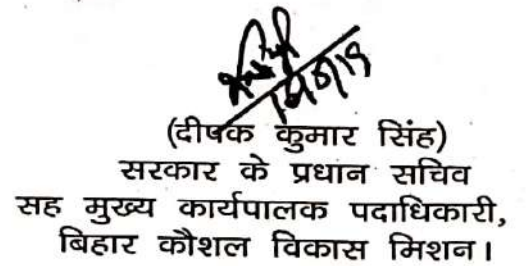 (दीपक कुमार सिंह)
सरकार के प्रधान सचिव
सह मुख्य कार्यपालक पदाधिकारी,
बिहार कौशल विकास मिशन।